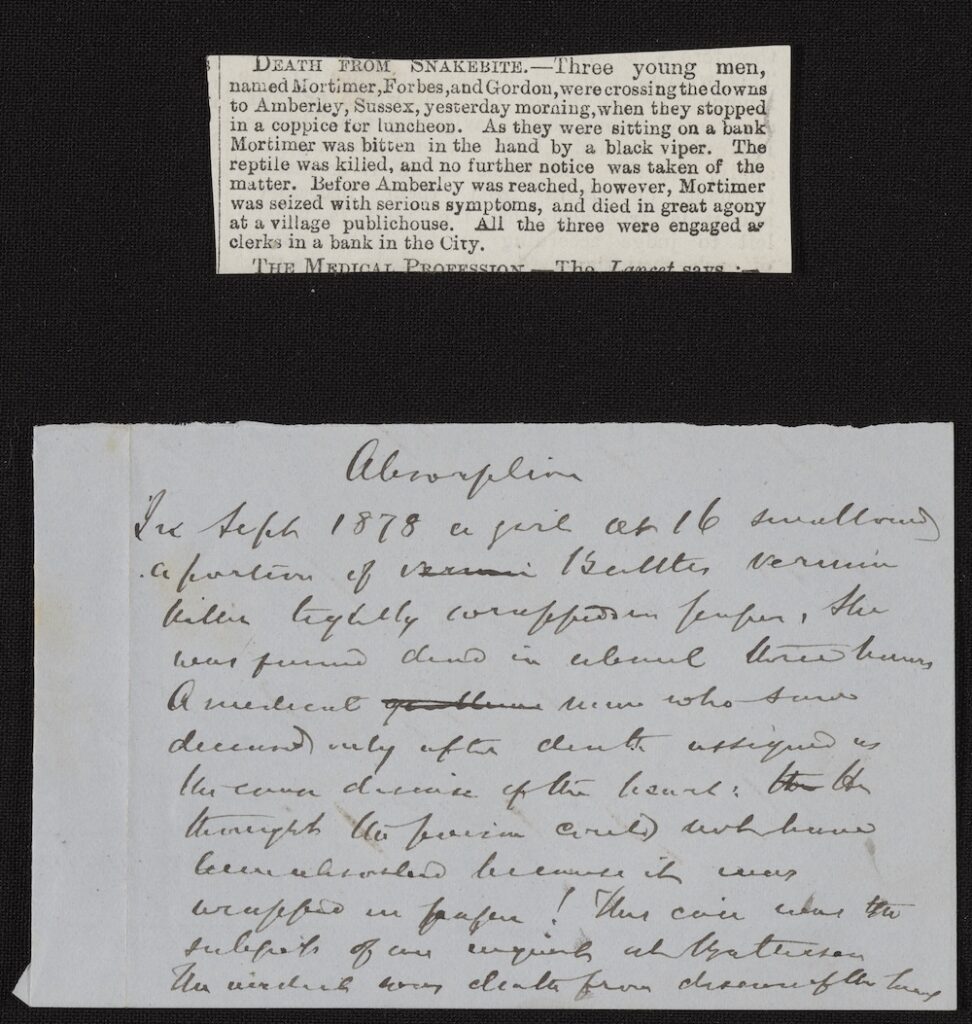 DEATH FROM SNAKEBITE.—Three young men,
named Mortimer, Forbes, and Gordon, were crossing the downs
to Amberley, Sussex, yesterday morning, when they stopped
in a coppice for luncheon. As they were sitting on a bank
Mortimer was bitten in the hand by a black viper. The
reptile was killed, and no further notice was taken of the
matter. Before Amberley was reached, however, Mortimer
was seized with serious symptoms, and died in great agony
at a village publichouse. All the three were engaged as
clerks in a bank in the City.
THE MEDICAL PROFESSION.—The Lancet says:—
Absorption
In Sept 1878 a girl aet 16 swallowed
a portion of vermin Battles vermin
killer tightly wrapped in paper, She
was found dead in about three hours
A medical man who saw
deceased only after death assigned as
the cause disease of the heart: the He
thought the poison could not have
been absorbed because it was
wrapped in paper! This case was the
subject of an inquest at Battersea
The verdict was death from disease of the heart